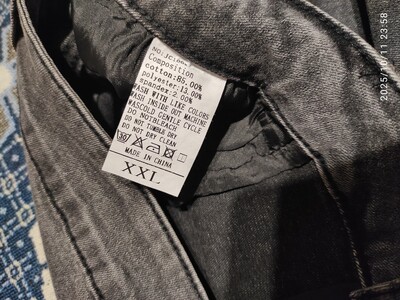 Composition
cotton:85.00%
polyester:13.00%
spandex:2.00%
WASH WITH LIKE COLORS
WASH INSIDE OUT MACHINE
WASCOLD GENTLE CYCLE
DO NOTBLEACH
DO NOT TUMBLE DRY
DO NOT DRY CLEAN
MADE IN CHINA
XXL
2025/10/11 23:58